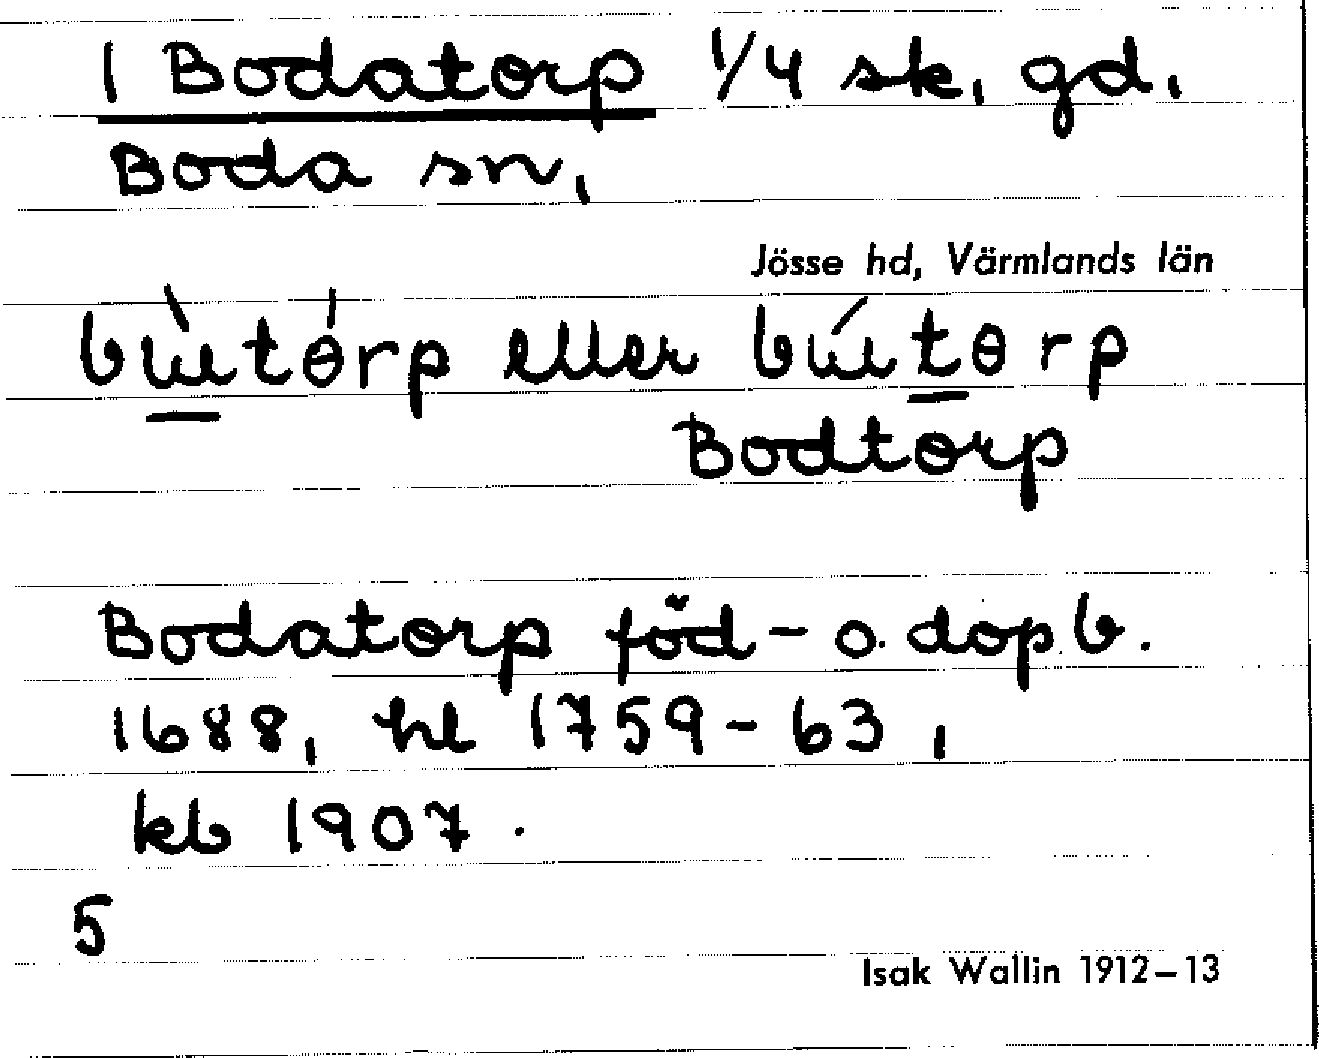 1 Bodatorp 1/4 sk, gd,
Boda sn,
Jösse hd, Värmlands län
bɯ̀tɵ́rp eller bɯ́tɵrp
Bodtorp
Bodatorp föd- o. dop.b.
1688, hl 1759-63,
kb 1907.
5
Isak Wallin 1912-13